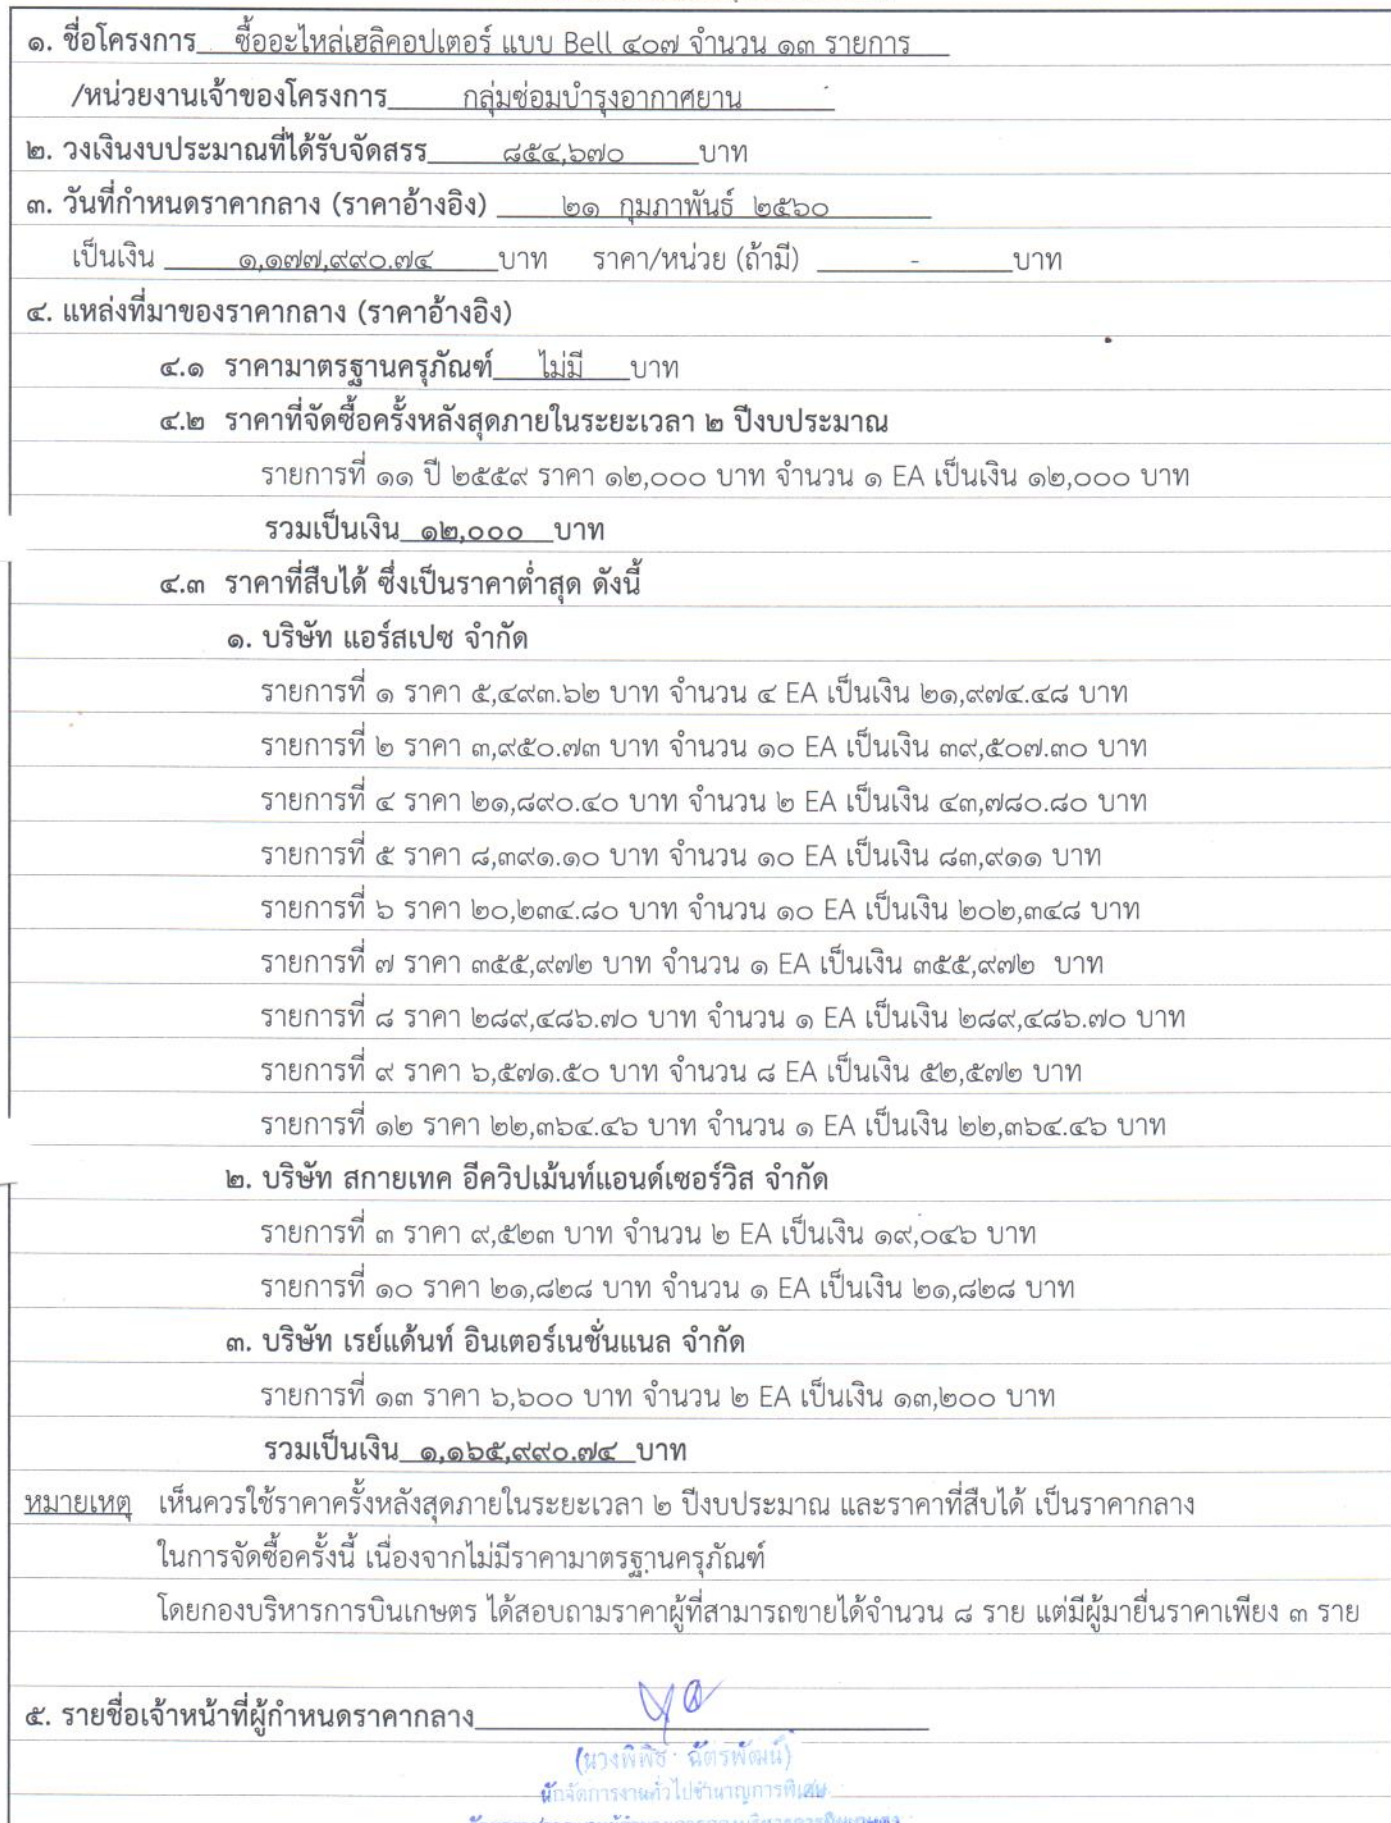 ๑. ชื่อโครงการ ซื้ออะไหล่เฮลิคอปเตอร์ แบบ Bell ๔๐๗ จำนวน ๑๓ รายการ
/หน่วยงานเจ้าของโครงการ กลุ่มซ่อมบำรุงอากาศยาน
๒. วงเงินงบประมาณที่ได้รับจัดสรร ๘๕๔,๖๗๐ บาท
๓. วันที่กำหนดราคากลาง (ราคาอ้างอิง) ๒๑ กุมภาพันธ์ ๒๕๖๐
เป็นเงิน ๑,๑๗๗,๙๙๐.๗๔ บาท ราคา/หน่วย (ถ้ามี) - บาท
๔. แหล่งที่มาของราคากลาง (ราคาอ้างอิง)
๔.๑ ราคามาตรฐานครุภัณฑ์ ไม่มี บาท
๔.๒ ราคาที่จัดซื้อครั้งหลังสุดภายในระยะเวลา ๒ ปีงบประมาณ
รายการที่ ๑๑ ปี ๒๕๕๙ ราคา ๑๒,๐๐๐ บาท จำนวน ๑ EA เป็นเงิน ๑๒,๐๐๐ บาท
รวมเป็นเงิน ๑๒,๐๐๐ บาท
๔.๓ ราคาที่สืบได้ ซึ่งเป็นราคาต่ำสุด ดังนี้
๑. บริษัท แอร์สเปซ จำกัด
รายการที่ ๑ ราคา ๕,๔๙๓.๖๒ บาท จำนวน ๔ EA เป็นเงิน ๒๑,๙๗๔.๔๘ บาท
รายการที่ ๒ ราคา ๓,๙๕๐.๗๓ บาท จำนวน ๑๐ EA เป็นเงิน ๓๙,๕๐๗.๓๐ บาท
รายการที่ ๔ ราคา ๒๑,๘๙๐.๔๐ บาท จำนวน ๒ EA เป็นเงิน ๔๓,๗๘๐.๘๐ บาท
รายการที่ ๕ ราคา ๘,๓๙๑.๑๐ บาท จำนวน ๑๐ EA เป็นเงิน ๘๓,๙๑๑ บาท
รายการที่ ๖ ราคา ๒๐,๒๓๔.๘๐ บาท จำนวน ๑๐ EA เป็นเงิน ๒๐๒,๓๔๘ บาท
รายการที่ ๗ ราคา ๓๕๕,๙๗๒ บาท จำนวน ๑ EA เป็นเงิน ๓๕๕,๙๗๒ บาท
รายการที่ ๘ ราคา ๒๘๙,๔๘๖.๗๐ บาท จำนวน ๑ EA เป็นเงิน ๒๘๙,๔๘๖.๗๐ บาท
รายการที่ ๙ ราคา ๖,๕๗๑.๕๐ บาท จำนวน ๘ EA เป็นเงิน ๕๒,๕๗๒ บาท
รายการที่ ๑๒ ราคา ๒๒,๓๖๔.๔๖ บาท จำนวน ๑ EA เป็นเงิน ๒๒,๓๖๔.๔๖ บาท
๒. บริษัท สกายเทค อีควิปเม้นท์แอนด์เซอร์วิส จำกัด
รายการที่ ๓ ราคา ๙,๕๒๓ บาท จำนวน ๒ EA เป็นเงิน ๑๙,๐๔๖ บาท
รายการที่ ๑๐ ราคา ๒๑,๘๒๘ บาท จำนวน ๑ EA เป็นเงิน ๒๑,๘๒๘ บาท
๓. บริษัท เรย์แด้นท์ อินเตอร์เนชั่นแนล จำกัด
รายการที่ ๑๓ ราคา ๖,๖๐๐ บาท จำนวน ๒ EA เป็นเงิน ๑๓,๒๐๐ บาท
รวมเป็นเงิน ๑,๑๖๕,๙๙๐.๗๔ บาท
หมายเหตุ เห็นควรใช้ราคาครั้งหลังสุดภายในระยะเวลา ๒ ปีงบประมาณ และราคาที่สืบได้ เป็นราคากลาง
ในการจัดซื้อครั้งนี้ เนื่องจากไม่มีราคามาตรฐานครุภัณฑ์
โดยกองบริหารการบินเกษตร ได้สอบถามราคาผู้ที่สามารถขายได้จำนวน ๘ ราย แต่มีผู้มายื่นราคาเพียง ๓ ราย
๕. รายชื่อเจ้าหน้าที่ผู้กำหนดราคากลาง
ฉัตรพัฒน์)
นักจัดการงานทั่วไปชำนาญการพิเศษ